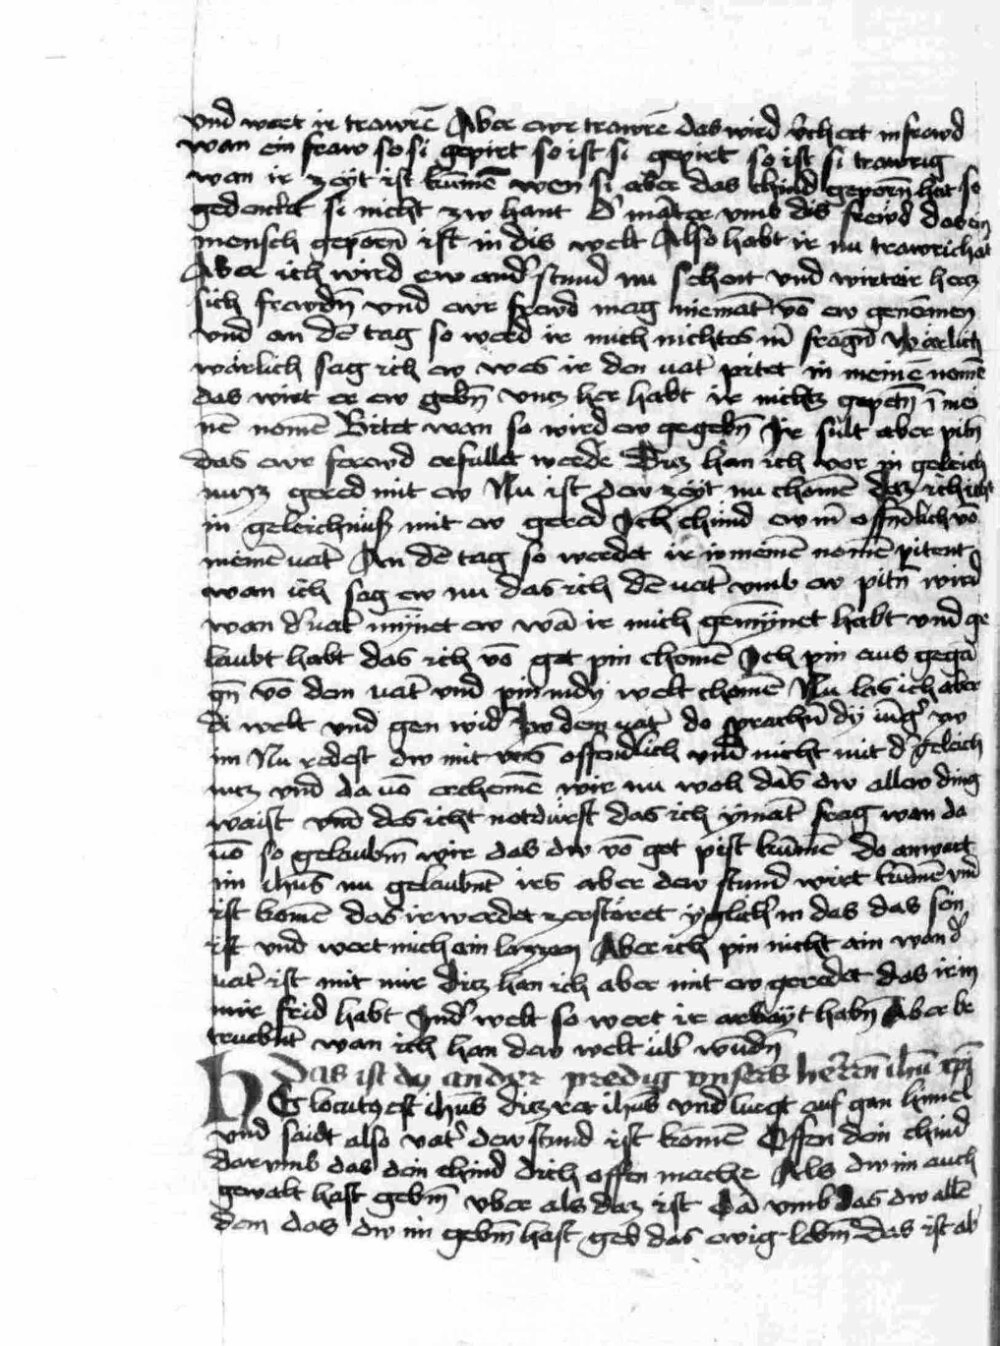 vnd wert ir trawrē Aber ewr trawrē das wird v̄chert in frawd
wan ein fraw so si gepirt so ist si gepirt so ist si trawrig
wan ir zeyt ist kūmē wen si aber das chind geporn̄ hat so
gedenckt si nicht zw hant d' mar̄ter vmb dis frewd das ein
mensch geporn̄ ist in dis welt Also habt ir nu trawrichait
Aber ich wird ew and' stund nu sehent vnd wirt ewr hercz
sich frawdn̄ vnd ewr frewd mag niemāt vō ew genōmen
vnd an dē tag so werd ir mich nichtes m̄ fragn̄ Wārlich
wārlich sag ich ew wes ir den vat' pitet in meinē nomē
das wirt er ew gebn̄ vncz her habt ir nichtz gepetn̄ ī mei
nē nomē Bitet wan so wird ew gegebn̄ Ir sūlt aber pitn̄
das ewr frewd erfullet werde Dicz han ich vor in geleich
nuzz gered mit ew Nu ist dew zeyt nu chomē daz ich nicht
in geleichnuß mit ew gered Ich chünd ew m̄ offn̄lich vō
meinē vat' An dē tag so werdet ir in meinē nomē pitent
wan ich sag ew nu das ich dē vat' vmb ew pitn̄ wird
wan d' vat' mȳnet ew wā ir mich gemȳnet habt vnd ge
laubt habt das ich vō got pin chomē Ich pin aus gegā
gn̄ vō dem vat' vnd pin in dy welt chomē Nu las ich aber
di welt vnd gen wid' zw dem vat' do sprachn̄ dy iūg' zw
im Nu redest dw mit vns offenlich vnd nicht mit d' geleich
nucz vnd da vō erchenē wir nu woll das dw allew ding
waist vnd des icht notdurft das ich ymāt frag wan da
vō so gelaubm̄ wir das dw vō got pist kūmē Do antwart
im ihūs nu gelaubmt irs aber dew stund wirt kūmē vnd
ist komē das ir werdet zerstöret yglich' in das das sein
ist vnd wert mich ain lazzen Aber ich pin nicht ain wan d'
vat' ist mit mir dicz han ich aber mit ew geredet das ir in
mir frid habt In d' welt so wert ir arbayt habn̄ Aber be
truebt nit wan ich han dew welt ub' wūdn̄
Das ist dy ander predig vnsers herrn̄ ihū xpī
HEc locutus est ihūs dicz ret ihūs vnd luegt auf gan himel
vnd saidt also vat' dew stund ist komē Offen dein chind
dar vmb das dein chind dich offen mache Als dw im auch
gewalt hast gebm̄ vber als daz ist Dā vmb das dw allē
dem das dw im gebm̄ hast geb das ewig lebm̄ Das ist ab'